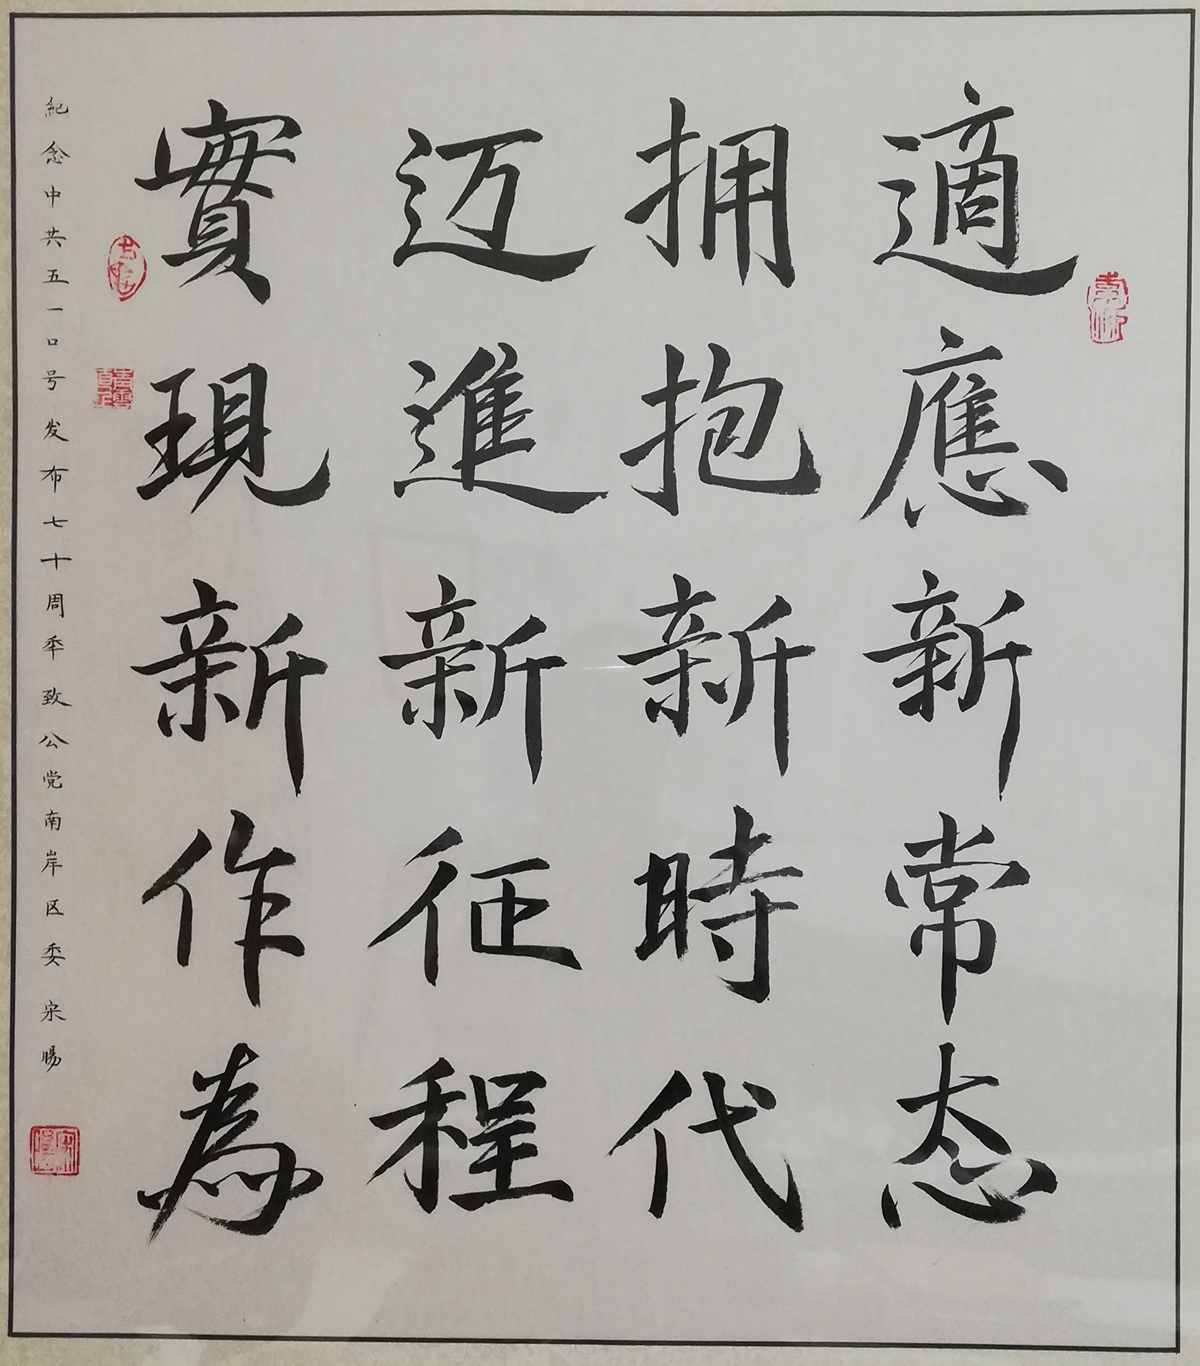 適應新常态
拥抱新時代
迈進新征程
實現新作為
紀念中共五一口号发布七十周年致公党南岸区委宋暘